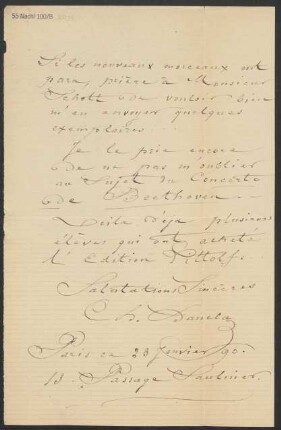 55 Nachl 100/B
Si les nouveaux morceaux ont
paru, prière à Monsieur
Schott de vouloir bien
m'en envoyer quelques
exemplaires...
Je le prie encore
de ne pas m'oublier
au sujet du Concerto
de Beethoven
Voilà déjà plusieurs
élèves qui ont acheté
l'Edition Litolff.
Salutations Sincères
Ch. Dancla
Paris ce 23 Janvier 90.
Passage Saulnier.